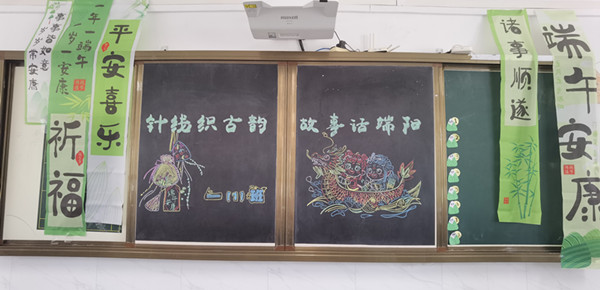 事事皆如意
安康
一年一端午
一岁一安康
祈福
平安喜乐
针线织古韵
一(1)班
故事话端阳
诸事顺遂
端午安康